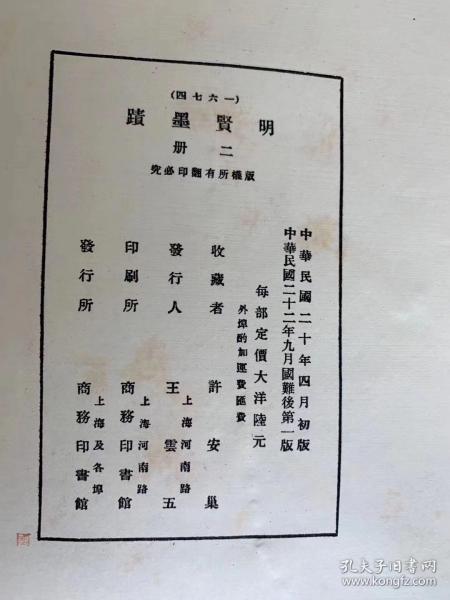 (一六七四)
明賢墨蹟
二冊
版權所有翻印必究
中華民國二十年四月初版
中華民國二十二年九月國難後第一版
每部定價大洋陸元
外埠酌加運費匯費
收藏者 許安巢
發行人 王雲五
上海河南路
印刷所 商務印書館
上海河南路
發行所 商務印書館
上海及各埠
孔夫子旧书网
www.kongfz.com